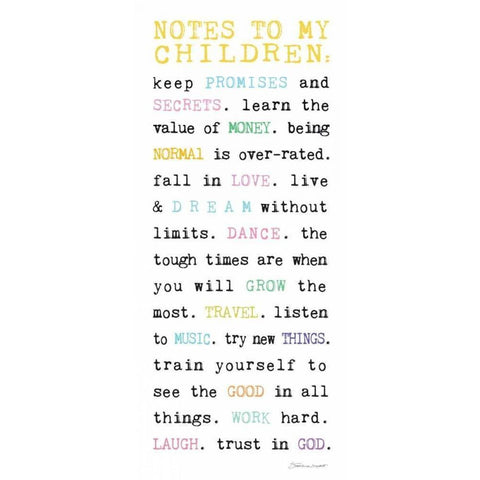 NOTES TO MY
CHILDREN:
keep PROMISES and
SECRETS. learn the
value of MONEY. being
NORMAl is over-rated.
fall in LOVE. live
& DREAM without
limits. DANCE. the
tough times are when
you will GROW the
most. TRAVEL. listen
to MUSIC. try new THINGS.
train yourself to
see the GOOD in all
things. WORK hard.
LAUGH. trust in GOD.